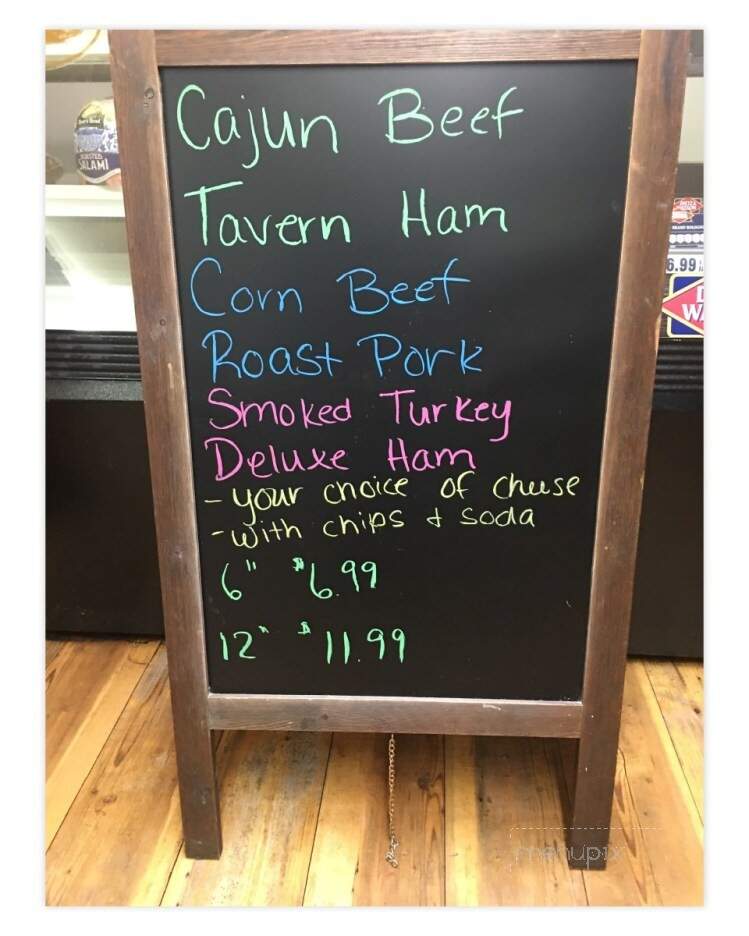 Cajun Beef
Tavern Ham
Corn Beef
Roast Pork
Smoked Turkey
Deluxe Ham
- your choice of cheese
- with chips & soda
6" $6.99
12" $11.99
SALAMI
6.99
menupix